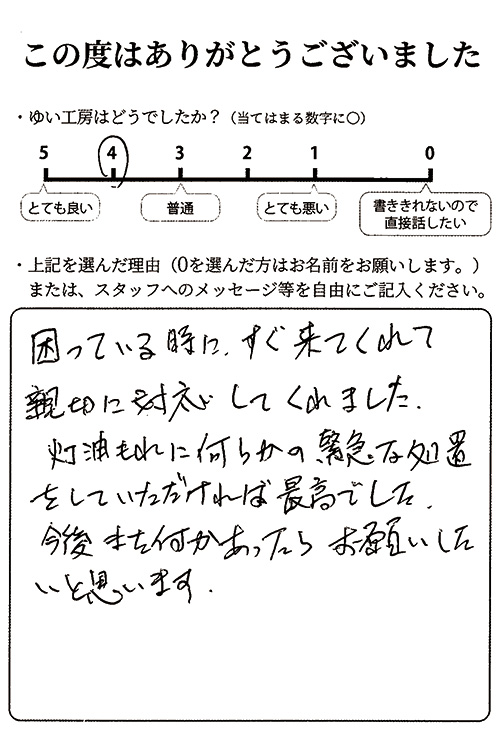 この度はありがとうございました
・ゆい工房はどうでしたか？（当てはまる数字に○）
5 4 3 2 1 0
とても良い 普通 とても悪い 書ききれないので
直接話したい
・上記を選んだ理由（0を選んだ方はお名前をお願いします。）
または、スタッフへのメッセージ等を自由にご記入ください。
困っている時に、すぐ来てくれて
親切に対応してくれました.
灯油もれに何らかの緊急な処置
をしていただければ最高でした.
今後また何かあったらお願いした
いと思います.